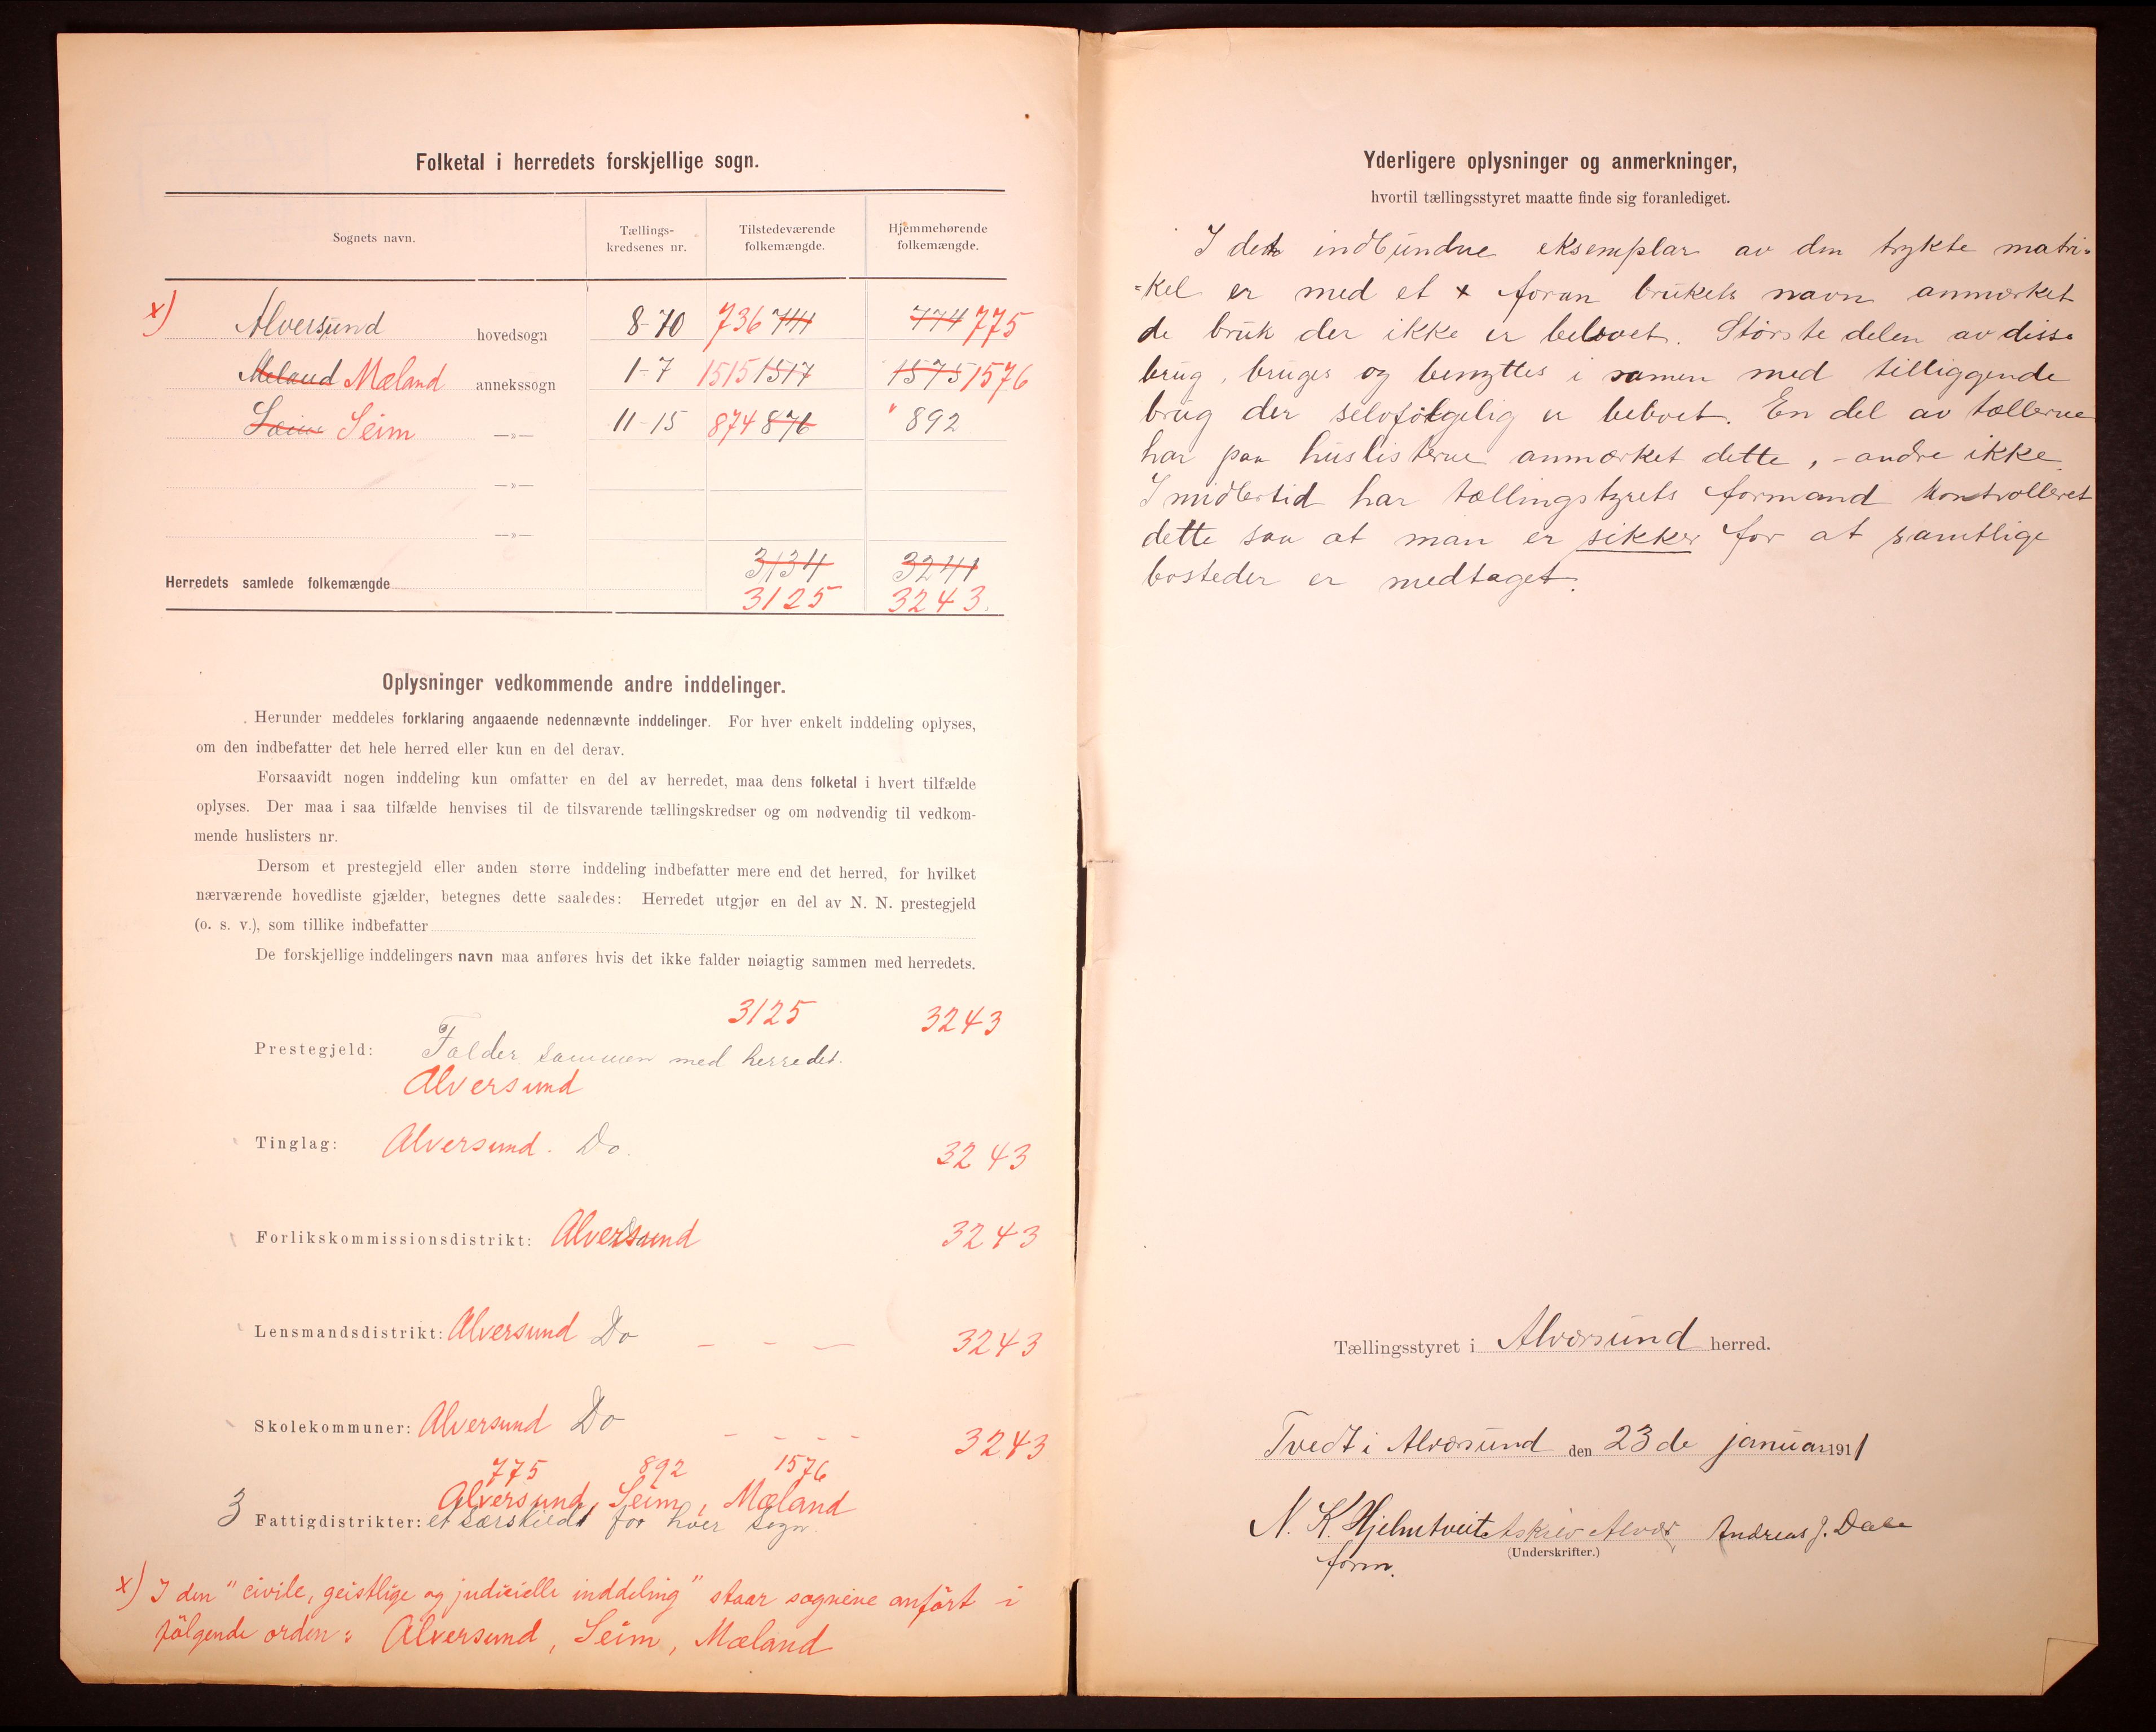 Folketal i herredets forskjellige sogn.
Sognets navn. Tællings-kredsenes nr. Tilstedeværende folkemængde. Hjemmehørende folkemængde.
x) Alversund hovedsogn 8-10 736 744 774 775
Meland Mæland annekssogn 1-7 1515 1517 1575 1576
Sæim Seim —»— 11-15 874 876 " 892
—»—
—»—
3134 3241
Herredets samlede folkemængde
3125 3243.
Oplysninger vedkommende andre inddelinger.
Herunder meddeles forklaring angaaende nedennævnte inddelinger. For hver enkelt inddeling oplyses,
om den indbefatter det hele herred eller kun en del derav.
Forsaavidt nogen inddeling kun omfatter en del av herredet, maa dens folketal i hvert tilfælde
oplyses. Der maa i saa tilfælde henvises til de tilsvarende tællingskredser og om nødvendig til vedkom-
mende huslisters nr.
Dersom et prestegjeld eller anden større inddeling indbefatter mere end det herred, for hvilket
nærværende hovedliste gjælder, betegnes dette saaledes: Herredet utgjør en del av N. N. prestegjeld
(o. s. v.), som tillike indbefatter
De forskjellige inddelingers navn maa anføres hvis det ikke falder nøiagtig sammen med herredets.
3125 3243
Prestegjeld: Falder sammen med herredet.
Alversund
Tinglag: Alversund. Do. 3243
Forlikskommissionsdistrikt: Alversund 3243
Lensmandsdistrikt: Alversund Do — — — 3243
Skolekommuner: Alversund Do — — — — 3243
775 892 1576
Alversund, Seim, Mæland
3 Fattigdistrikter: et særskildt for hver sogn.
x) I den "civile, geistlige og judicielle inddeling" staar sognene anført i
følgende orden: Alversund, Seim, Mæland
Yderligere oplysninger og anmerkninger,
hvortil tællingsstyret maatte finde sig foranlediget.
I det indbundne eksemplar av den trykte matri-
-kel er med et x foran brukets navn anmærket
de bruk der ikke er beboet. Største delen av disse
brug, bruges og benyttes i samen med tilliggende
brug der selvfølgelig er beboet. En del av tællerne
har paa huslisterne anmærket dette, - andre ikke.
Imidlertid har tællingstyrets formand kontrolleret
dette saa at man er sikker for at samtlige
bosteder er medtaget.
Tællingsstyret i Alversund herred.
Tvedt i Alversund den 23de januar 1911
N. K. Hjelmtveit Askild Alver Andreas J. Dale
form. (Underskrifter.)